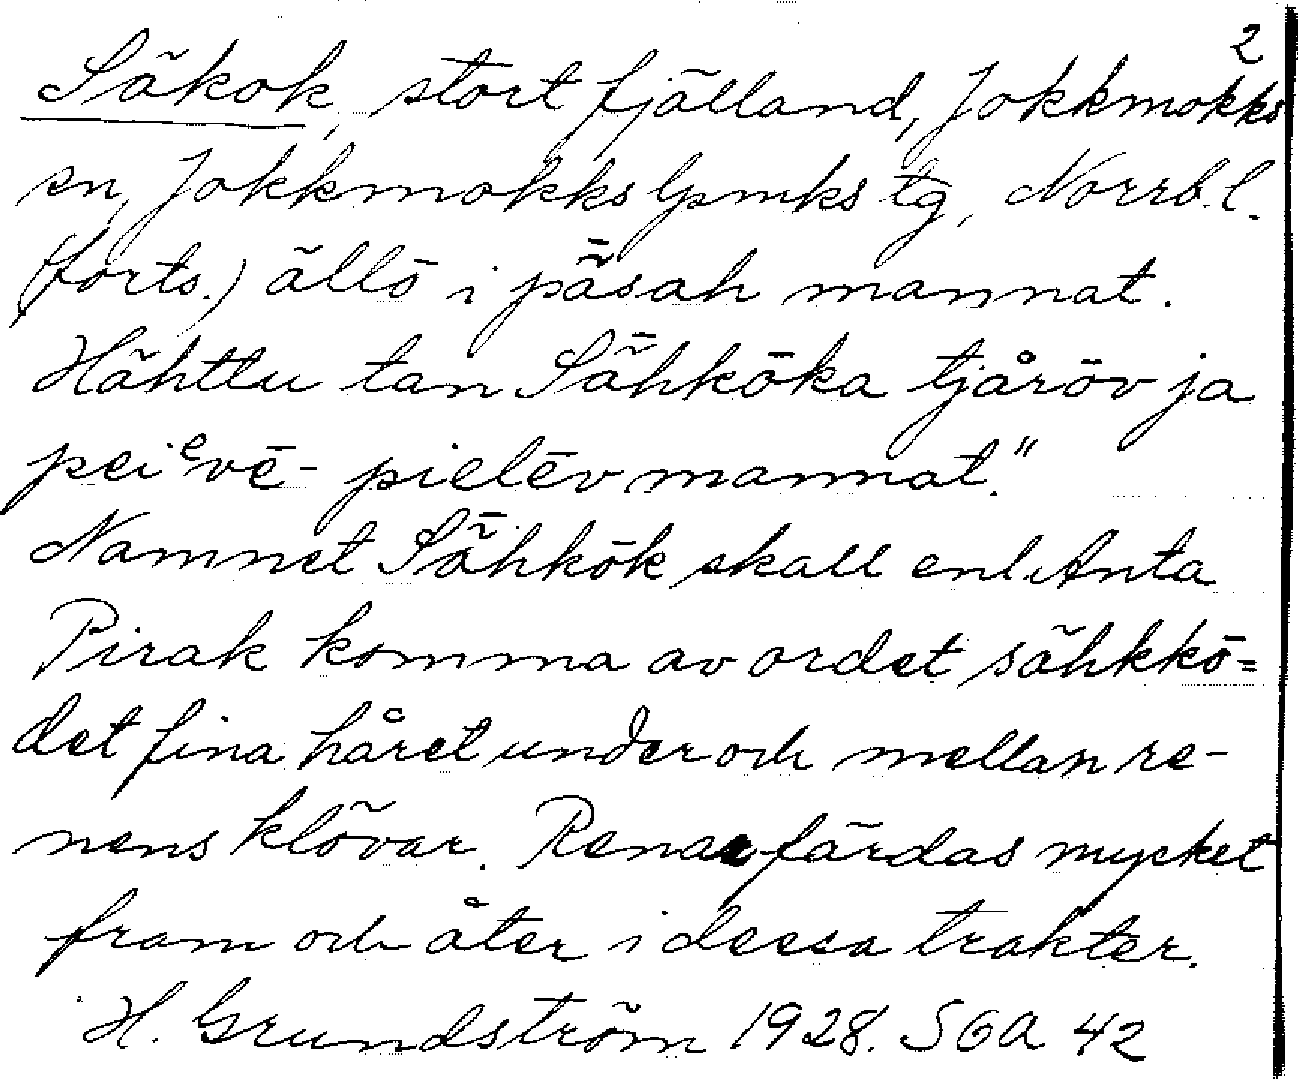 2
Säkok, stort fjälland, Jokkmokks
sn, Jokkmokks lpmks tg, Norrb. l.
(forts.) ällō i pǟsah mannat.
Hähttu tan Sǟhkōka tjårōv ja
peiᵉvē- pielēv mannat."
Namnet Sǟhkōk skall enl. Anta
Pirak komma av ordet sähkkō=
det fina håret under och mellan re-
nens klövar. Renar färdas mycket
fram och åter i dessa trakter.
H. Grundström 1928. SGA 42